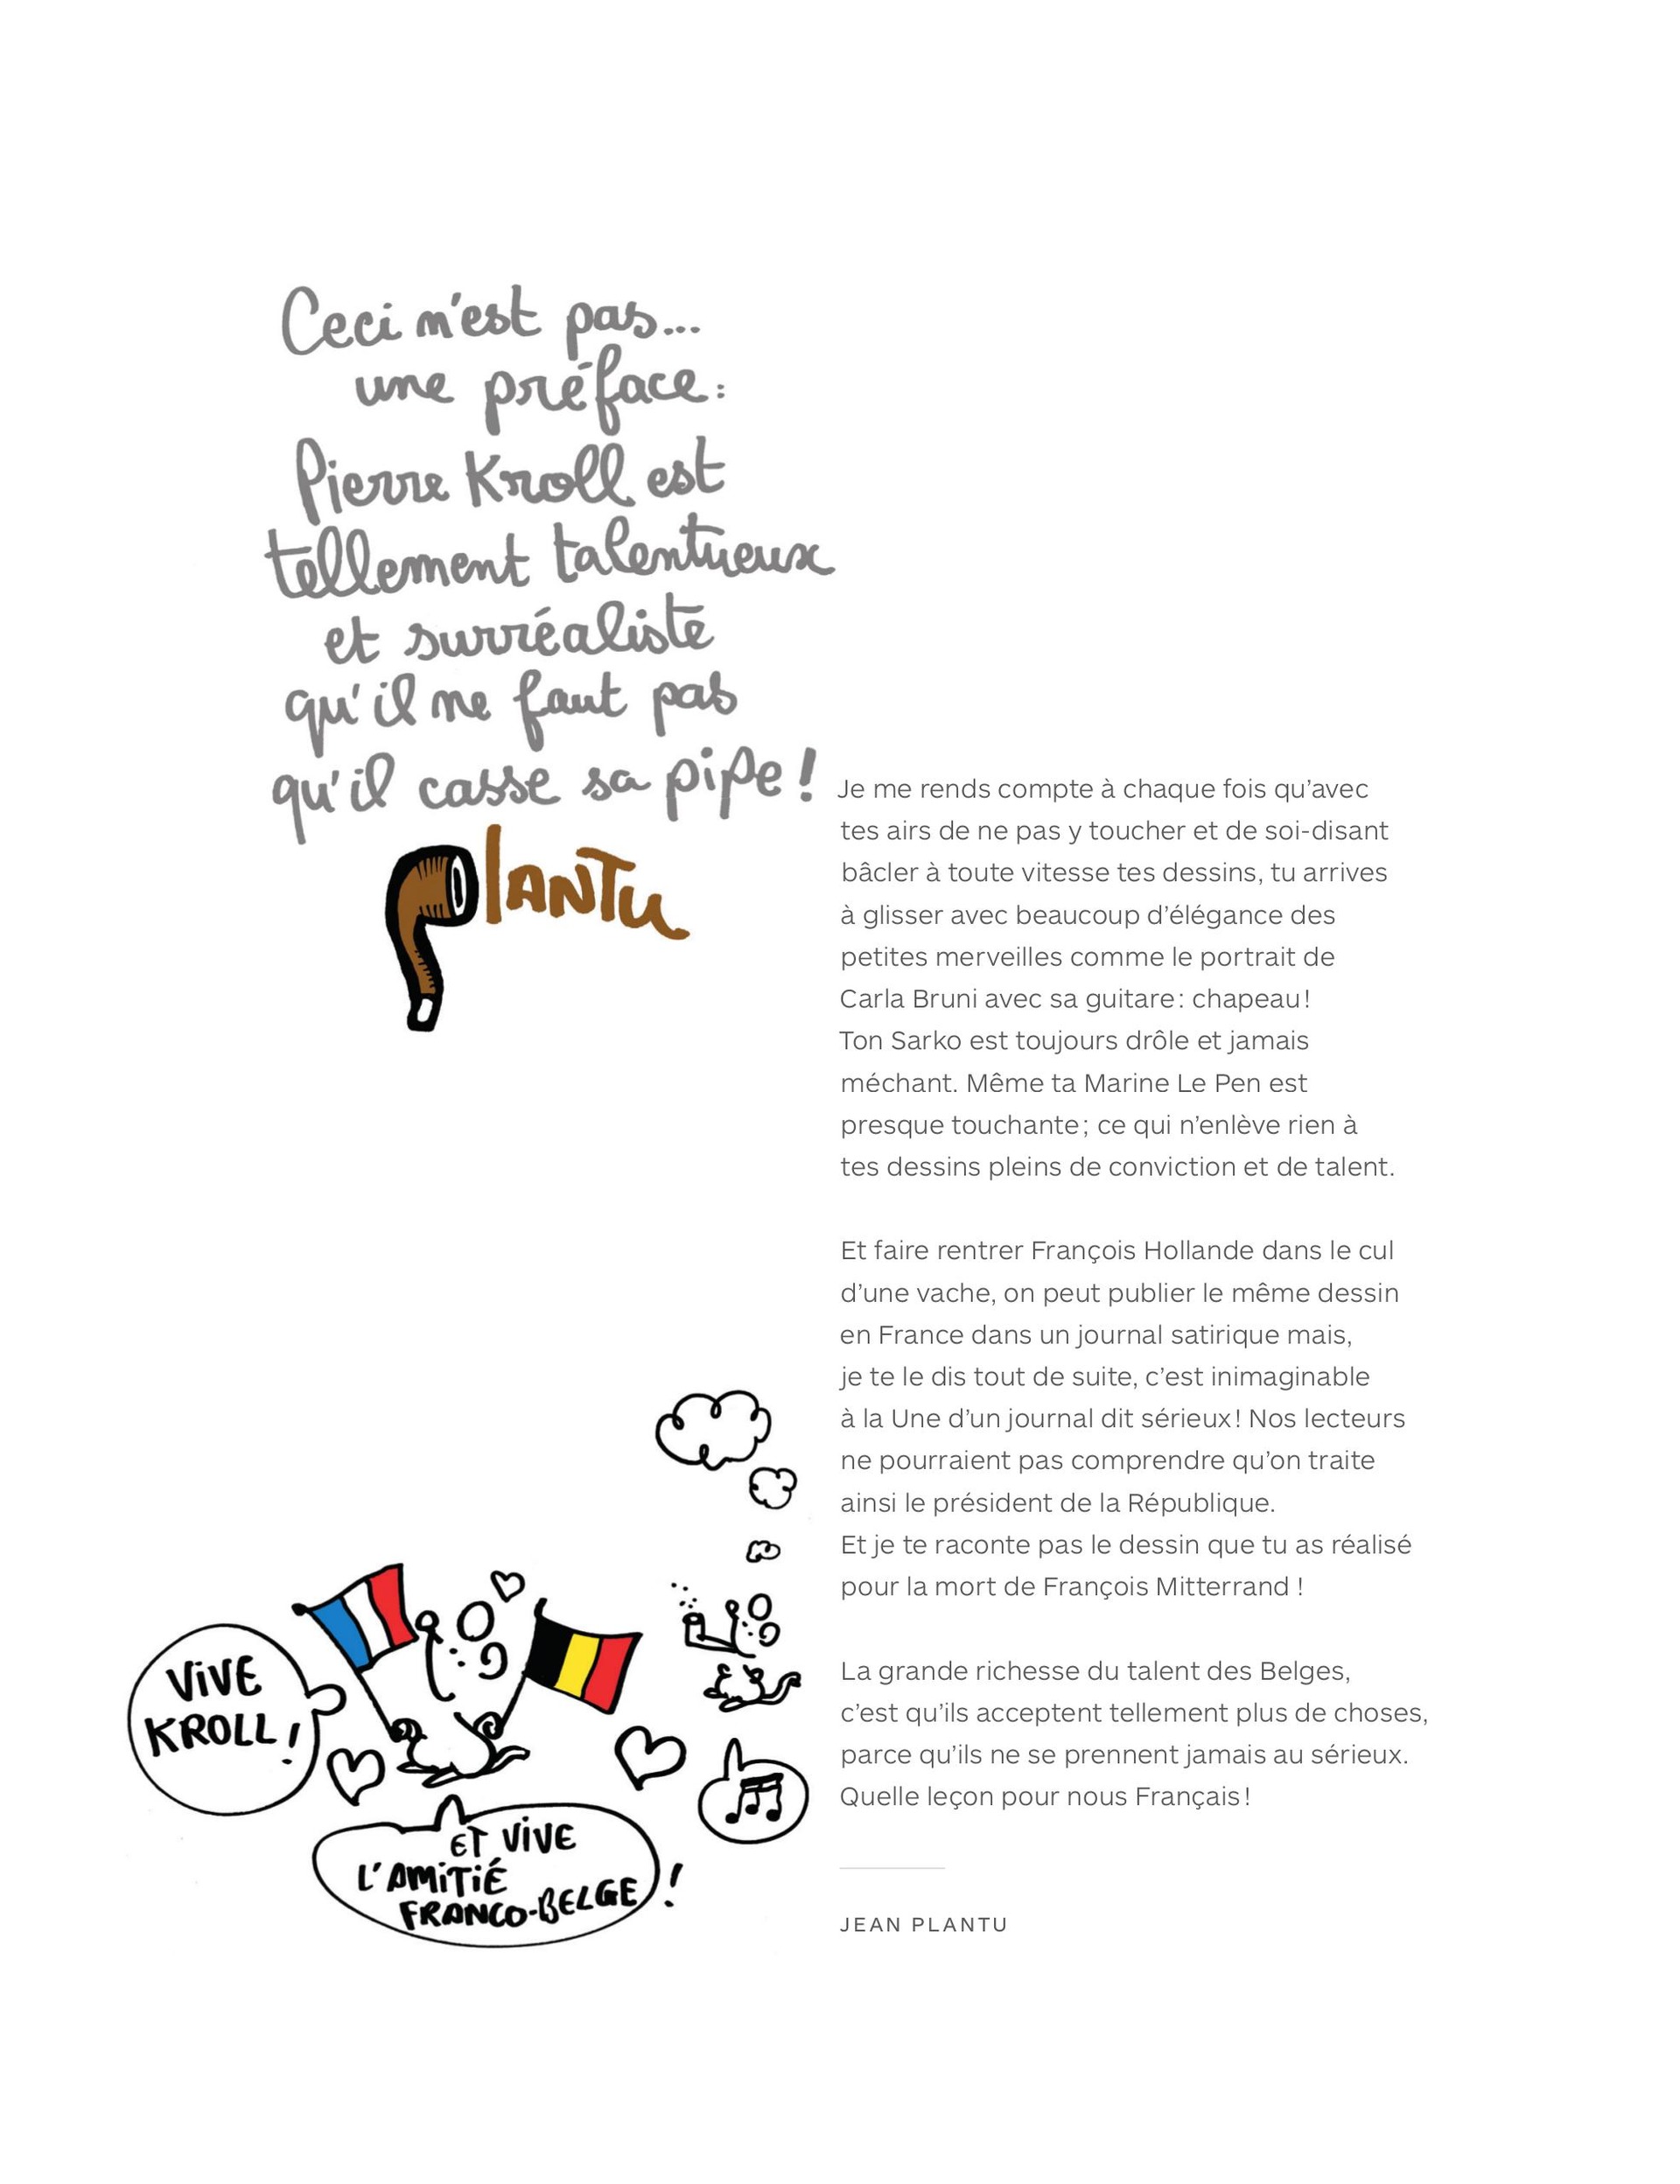 Ceci n'est pas...
une préface :
Pierre Kroll est
tellement talentueux
et surréaliste
qu'il ne faut pas
qu'il casse sa pipe !
PLANTU
Je me rends compte à chaque fois qu’avec
tes airs de ne pas y toucher et de soi-disant
bâcler à toute vitesse tes dessins, tu arrives
à glisser avec beaucoup d’élégance des
petites merveilles comme le portrait de
Carla Bruni avec sa guitare : chapeau !
Ton Sarko est toujours drôle et jamais
méchant. Même ta Marine Le Pen est
presque touchante ; ce qui n’enlève rien à
tes dessins pleins de conviction et de talent.
Et faire rentrer François Hollande dans le cul
d’une vache, on peut publier le même dessin
en France dans un journal satirique mais,
je te le dis tout de suite, c’est inimaginable
à la Une d’un journal dit sérieux ! Nos lecteurs
ne pourraient pas comprendre qu’on traite
ainsi le président de la République.
Et je te raconte pas le dessin que tu as réalisé
pour la mort de François Mitterrand !
La grande richesse du talent des Belges,
c’est qu’ils acceptent tellement plus de choses,
parce qu’ils ne se prennent jamais au sérieux.
Quelle leçon pour nous Français !
JEAN PLANTU
ViVE
KROLL !
ET ViVE
L'AMiTiÉ
FRANCO-BELGE !